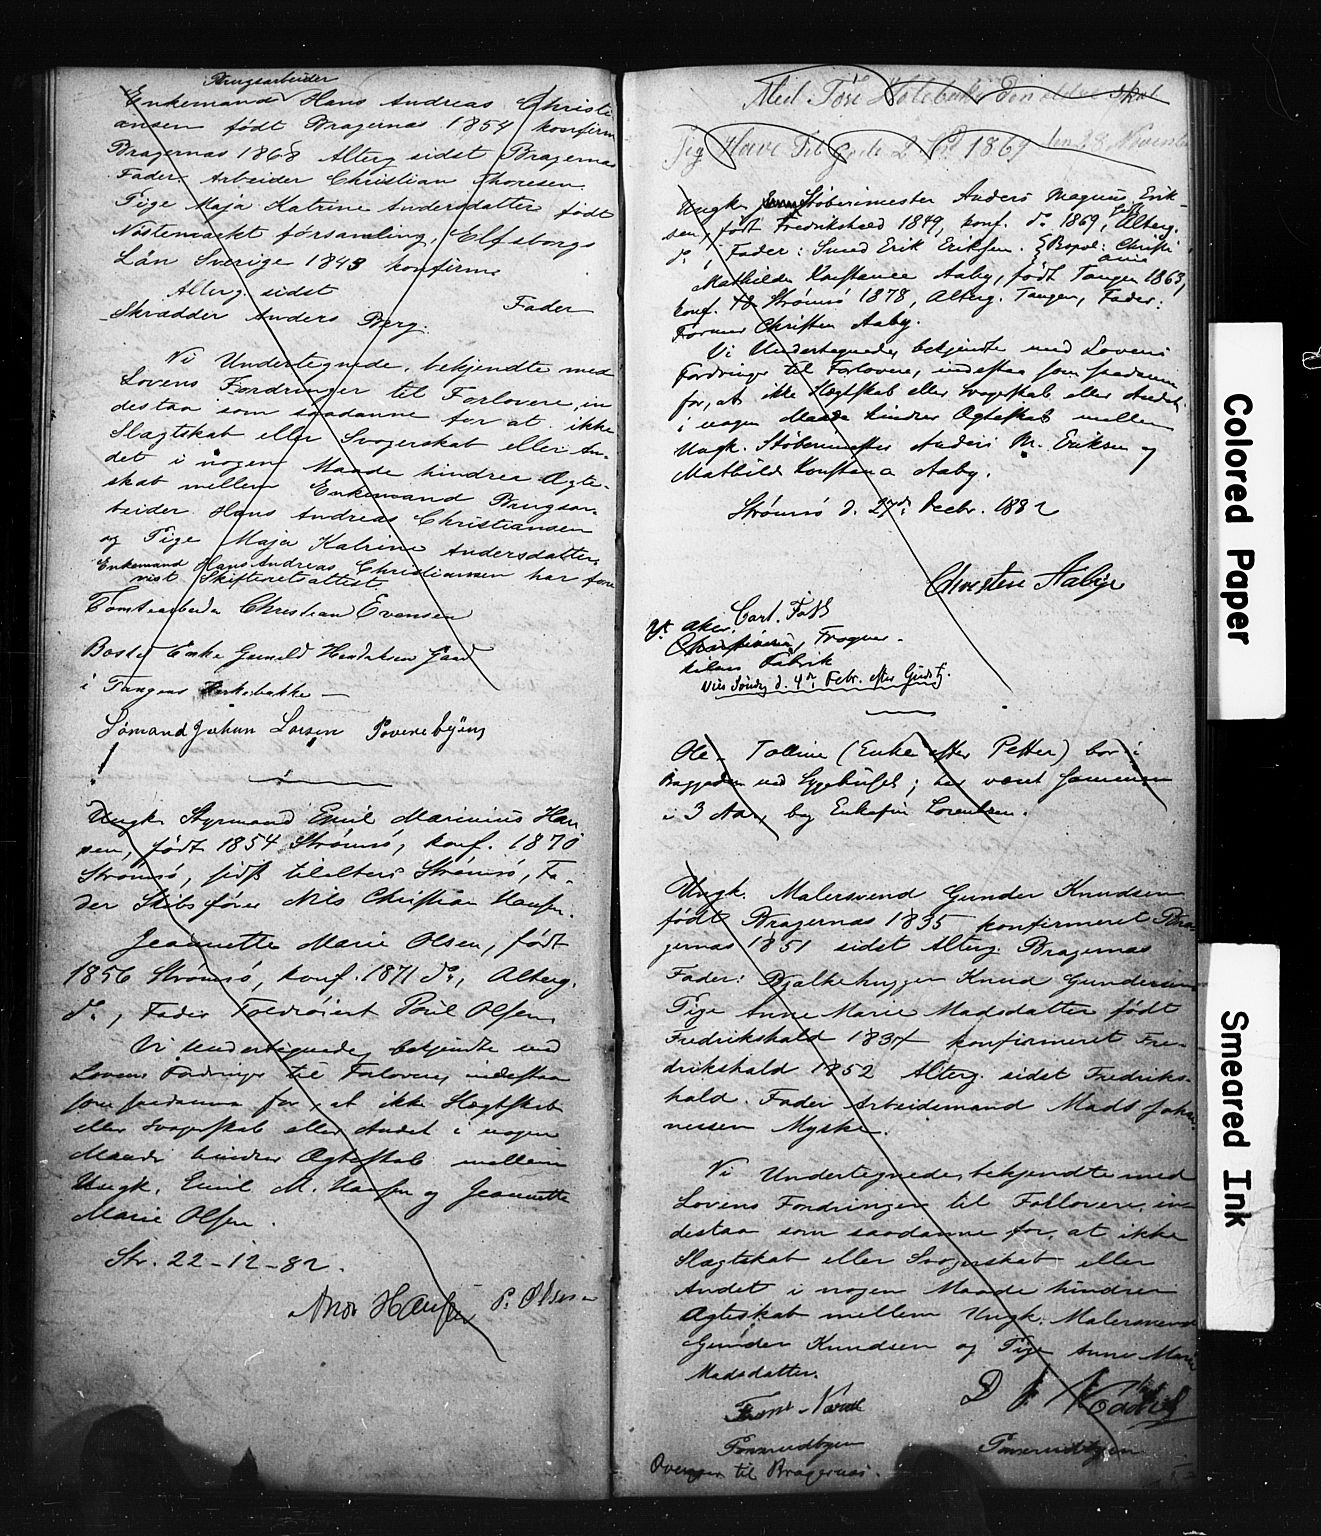 Brugsarbeider
Enkemand Hans Andreas Christi
ansen født Bragernas 1854 konfirm
Bragernas 1868 Alterg sidst Bragernas
Fader Arbeider Christian Thoresen
Pige Maja Katrine Andersdatter født
Nøstemarkt førsamling, Elfsborgs
Län Sverige 1843 konfirm
Alterg. sidst
Fader
Skrædder Anders Berg.
Vi Undertegnede, bekjendte med
Lovens Fordringer til Forlovere, in
destaa som saadanne for at ikke
Slægtskab eller Svogerskab eller An-
det i nogen Maade hindrer Ægte-
skab mellem Enkemand Brugsar-
beider Hans Andreas Christiansen
og Pige Maja Katrine Andersdatter
Enkemand Hans Andreas Christiansen har fore
vist Skifteretsattest
Tomtearbeider Christian Evensen
Enke Gunild
i Tangens
Sømand Johan Larsen
Ungk. Styrmand Emil Marinius Han
sen, født 1854 Strømsø, konf. 1870
Strømsø, sidst tilalters Strømsø, Fa-
der Skibsfører Nils Christian Hansen.
Jeannette Marie Olsen, født
1856 Strømsø, konf. 1871 do, Alterg.
do, Fader Poul Olsen.
Vi undertegnede, bekjendte med
Lovens Fordringer til Forlovere, indestaa
som saadanne for, at ikke Slægtskab
eller Svogerskab eller Andet i nogen
Maade hindrer Ægteskab mellem
Ungk. Emil M. Hansen og Jeannette
Marie Olsen.
Str. 22-12-82.
Hansen P. Olsen
Med
Jeg Have Til gode 2 1869 den 28 November
Ungk. Støberimester Anders Magnus Erik-
sen, født Fredrikshald 1849, konf. do 1869, Alterg.
do, Fader: Smed Erik Eriksen. Bopæl: Christi
ania
Mathilde Konstance Aaby, født Tangen 1863,
konf. Strømsø 1878, Alterg. Tangen, Fader:
Former Christen Aaby.
Vi Undertegnede, bekjendte med Lovens
Fordringer til Forlovere, indestaa som saadanne
for, at ikke Slægtskab eller Svogerskab eller Andet
i nogen Maade hindrer Ægteskab mellem
Ungk. Støberimester Anders M. Eriksen og
Mathilde Konstance Aaby.
Strømsø d. 27de Decbr. 1882
Christen Aabye
Carl
Aker
Christiania, Frogner.
Fabrik
Vies Søndag d. 4de Febr. efter Gudstj.
Ole, Talline (Enke efter Petter) bor i
ved Sygehuset; har været sammen
i 3 Aar, Lorentsen.
Ungk. Malersvend Gunder Knudsen
født Bragernas 1835 konfirmeret Bra
gernas 1851 sidst Alterg. Bragernas
Fader: Bjalkehugger Knud Gundersen
Pige Anne Marie Madsdatter født
Fredrikshald 1837 konfirmeret Fre-
drikshald 1852 Alterg. sidst Fredriks-
hald. Fader Arbeidsmand Mads Johan
nessen Myske.
Vi Undertegnede, bekjendte med
Lovens Fordringer til Forlovere, in-
destaa som saadanne for, at ikke
Slægtskab eller Svogerskab eller
Andet i nogen Maade hindrer
Ægteskab mellem Ungk. Malersvend
Gunder Knudsen og Pige Anne Marie
Madsdatter.
Overgaar til Bragernas.
Colored Paper
Smeared Ink